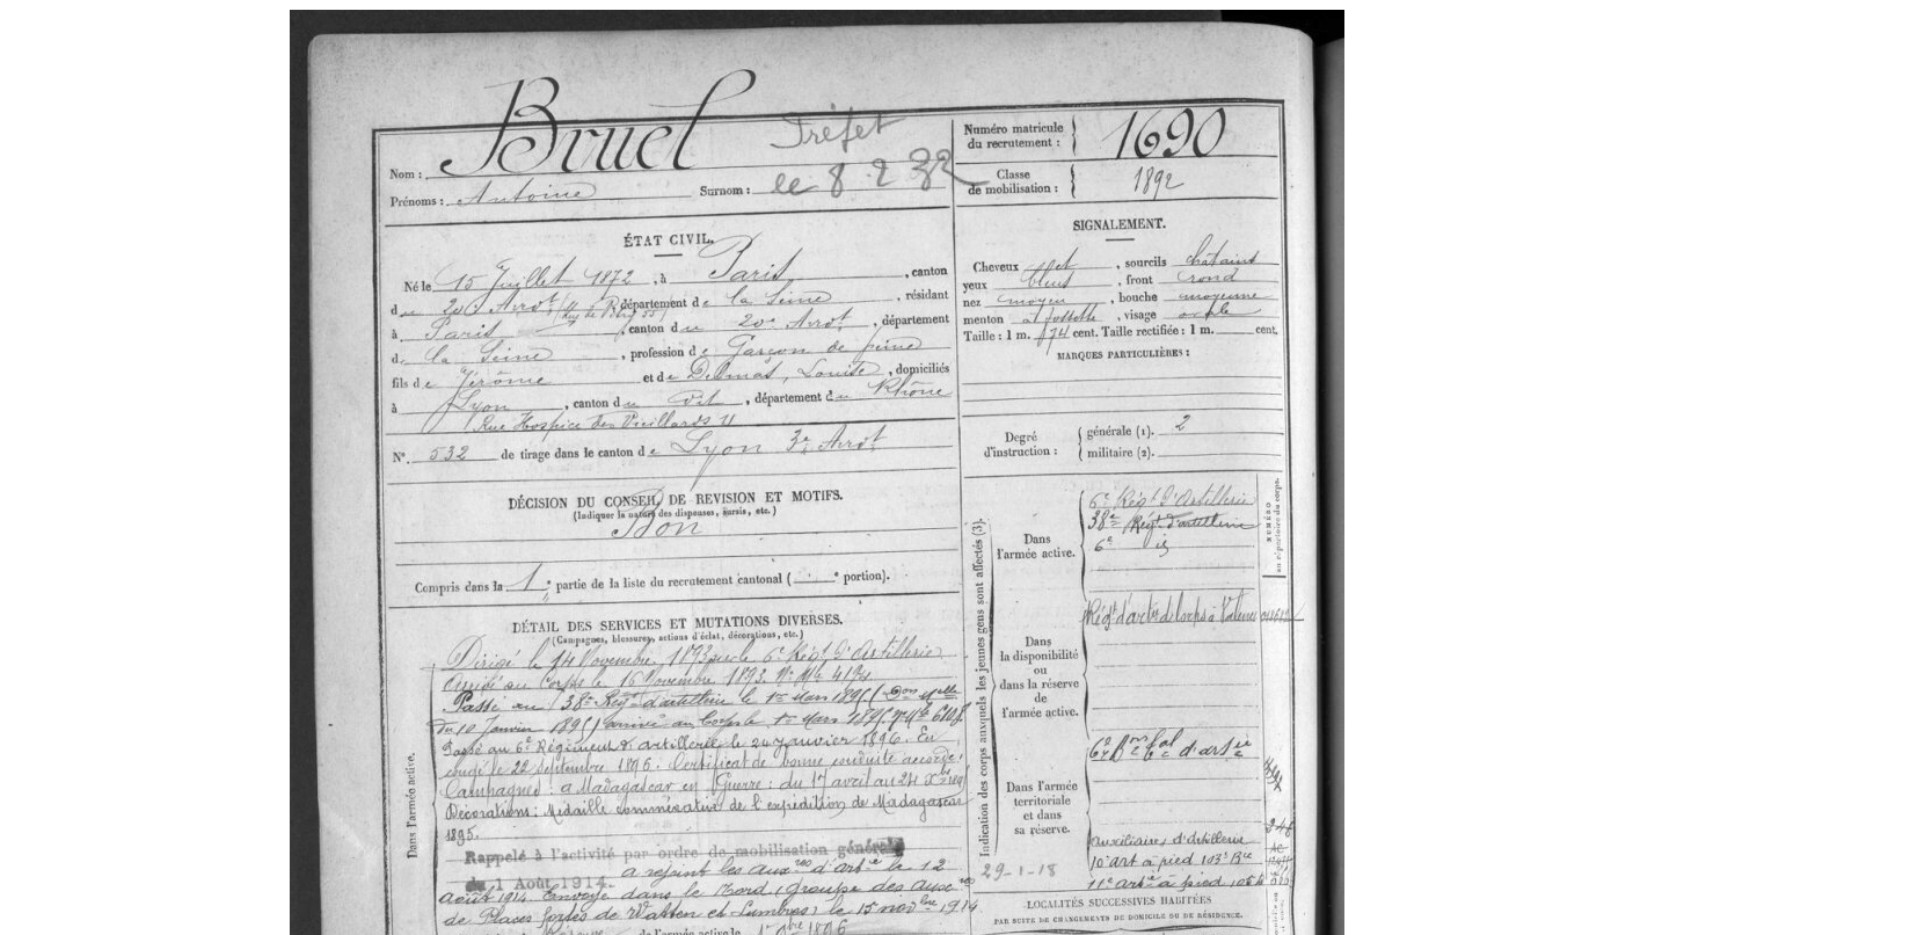 Bruel
Préfet
Nom :
Prénoms : Antoine
Surnom : le 8 2 32
Numéro matricule
du recrutement : 1690
Classe
de mobilisation : 1892
ÉTAT CIVIL.
Né le 15 Juillet 1872, à Paris, canton
du 20e Arrot département de la Seine, résidant
à Paris, canton du 20e Arrot, département
de la Seine, profession de Garçon de peine
fils de Jérôme et de Delmas, Louise, domiciliés
à Lyon, canton du dit, département du Rhône
Rue Hospice des Vieillards 11
N°. 532 de tirage dans le canton de Lyon 3e Arrot
DÉCISION DU CONSEIL DE REVISION ET MOTIFS.
(Indiquer la nature des dispenses, sursis, etc.)
Bon
Compris dans la 1e partie de la liste du recrutement cantonal ( portion).
DÉTAIL DES SERVICES ET MUTATIONS DIVERSES.
(Campagnes, blessures, actions d'éclat, décorations, etc.)
Dans l'armée active.
Dirigé le 14 Novembre 1893 sur le 6e Régt d'Artillerie
Arrivé au Corps le 16 Novembre 1893. No Mle
Passé au 38e Régt d'artillerie le 1er Mars 1895 (Don Mlle
du 10 Janvier 1895) arrivé au Corps le 1er Mars 1895
Passé au 6e Régiment d'artillerie le 24 Janvier 1896. En
congé le 22 Septembre 1896. Certificat de bonne conduite accordé.
Campagnes : a Madagascar en Guerre : du 17 avril au 24 Xbre
Décorations : Médaille commérative de l'expédition de Madagascar
1895.
Rappelé à l'activité par ordre de mobilisation générale
du 1 Août 1914. a rejoint les auxres d'artie le 12
août 1914. Envoyé dans le Nord (groupe des auxres
de Places fortes de Watten et Lumbres) le 15 novbre 1914
de l'armée active le 1896
SIGNALEMENT.
Cheveux et, sourcils châtains
yeux bleus, front rond
nez moyen, bouche moyenne
menton à fossette, visage ovale
Taille : 1 m. 74 cent. Taille rectifiée : 1 m. cent.
MARQUES PARTICULIÈRES :
Degré
d'instruction :
générale (1). 2
militaire (2).
Indication des corps auxquels les jeunes gens sont affectés (3).
NUMÉRO
au répertoire du corps.
Dans
l'armée active.
6e Régt d'Artillerie
38e Régt d'artillerie
6e id
Dans
la disponibilité
ou
dans la réserve
de
l'armée active.
Régt d'artie de Corps à Valence
Dans l'armée
territoriale
et dans
sa réserve.
6e Bon tal d'artie
auxiliaires d'artillerie
10e art à pied 103e Bie
29-1-18
11e artie à pied
LOCALITÉS SUCCESSIVES HABITÉES
PAR SUITE DE CHANGEMENTS DE DOMICILE OU DE RÉSIDENCE.